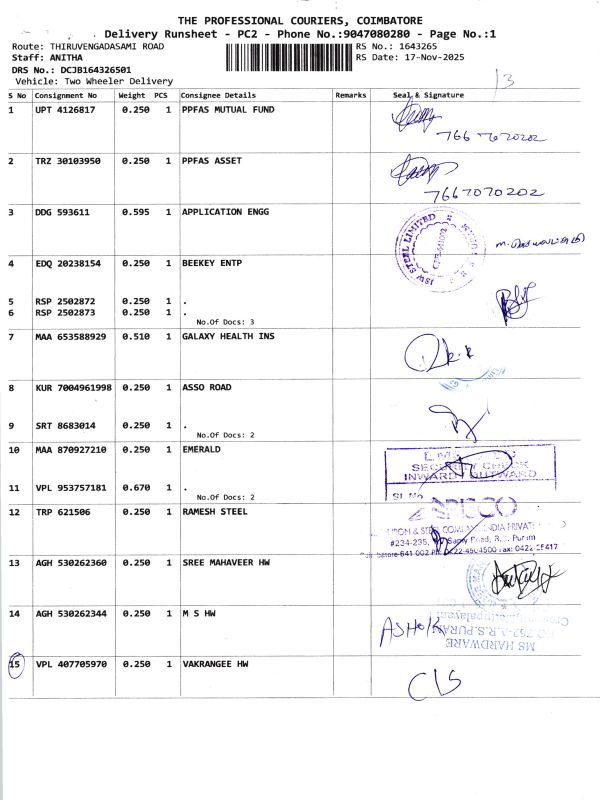 THE PROFESSIONAL COURIERS, COIMBATORE
Delivery Runsheet - PC2 - Phone No.:9047080280 - Page No.:1
Route: THIRUVENGADASAMI ROAD
RS No.: 1643265
Staff: ANITHA
RS Date: 17-Nov-2025
DRS No.: DCJB164326501
Vehicle: Two Wheeler Delivery
13
S No Consignment No Weight PCS Consignee Details Remarks Seal & Signature
1 UPT 4126817 0.250 1 PPFAS MUTUAL FUND
2 TRZ 30103950 0.250 1 PPFAS ASSET
7667070202
3 DDG 593611 0.595 1 APPLICATION ENGG
JSW STEEL LIMITED
4 EDQ 20238154 0.250 1 BEEKEY ENTP
5 RSP 2502872 0.250 1 .
6 RSP 2502873 0.250 1 .
No.Of Docs: 3
7 MAA 653588929 0.510 1 GALAXY HEALTH INS
8 KUR 7004961998 0.250 1 ASSO ROAD
9 SRT 8683014 0.250 1 .
No.Of Docs: 2
10 MAA 870927210 0.250 1 EMERALD
SECURITY CHECK
INWARD / OUTWARD
11 VPL 953757181 0.670 1 .
No.Of Docs: 2
Sl No
12 TRP 621506 0.250 1 RAMESH STEEL
#234-235,
13 AGH 530262360 0.250 1 SREE MAHAVEER HW
14 AGH 530262344 0.250 1 M S HW
ASHOK
MS HARDWARE
15 VPL 407705970 0.250 1 VAKRANGEE HW
CLS